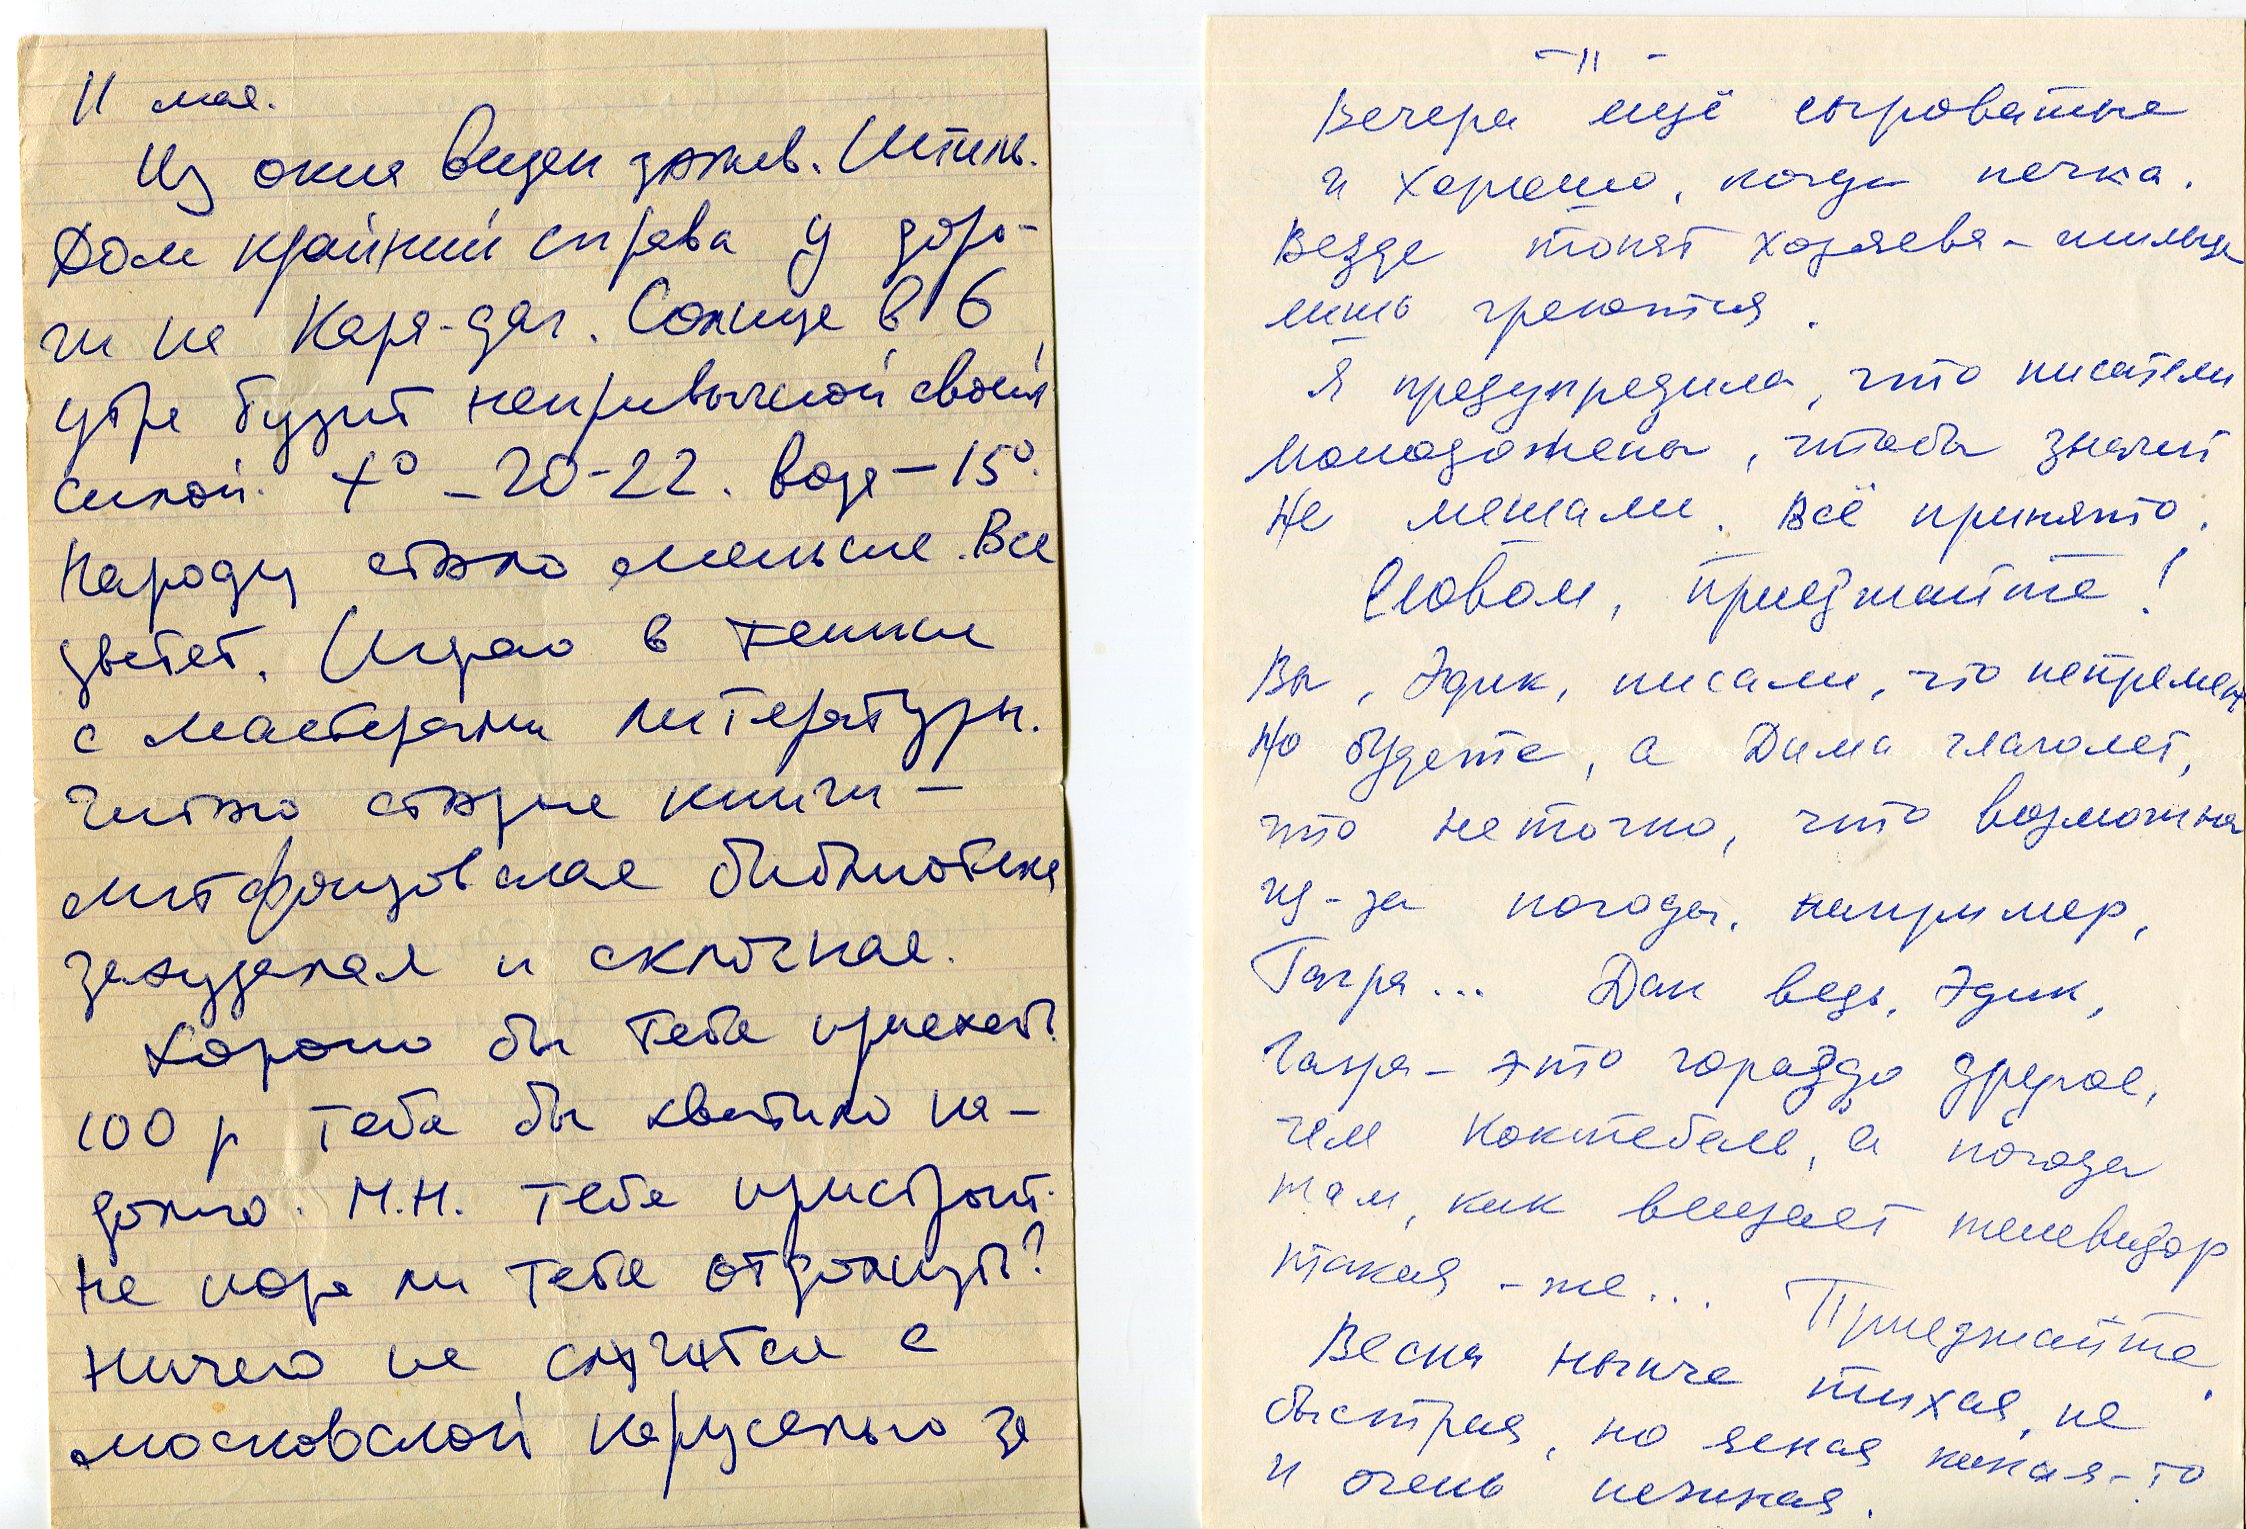 11 мая.
Из окна виден залив. Штиль.
Дом крайний справа у доро-
ги на Кара-даг. Солнце в 6
утра будит непривычной своей
силой. t° – 20-22. вода – 15°.
Народу стало меньше. Все
цветет. Играю в теннис
с мастерами литературы.
Читаю старые книги –
литфондовская библиотека
захудалая и склочная.
Хорошо бы тебе приехать
100 р тебе бы хватило на-
долго. М.Н. тебя пристроит.
Не пора ли тебе отдохнуть?
Ничего не случится с
московской каруселью за
– 11 –
Вечера ещё сыроватые
и хорошо, когда печка.
Везде топят хозяева – жильцы
лишь греются.
Я предупредила, что писатели
молодожены, чтобы значит
не мешали. Всё принято.
Словом, приезжайте!
Вы, Эдик, писали, что непремен
но будете, а Дима глаголет,
что не точно, что возможна
из-за погоды, например,
Гагра... Дак ведь, Эдик,
Гагра – это гораздо другое,
чем Коктебель, а погода
там, как вещает телевизор
такая-же... Приезжайте.
Весна нынче тихая, не
быстрая, но ясная какая-то
и очень нежная.